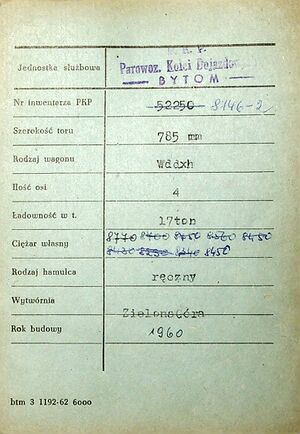 P. K. P.
Jednostka służbowa Parowoz. Kolei Dojazdow
BYTOM
Nr inwenterza PKP 52250 8146-2
Szerokość toru 785 mm
Rodzaj wagonu Wddxh
Ilość osi 4
Ładowność w t. 17ton
8770 8400 8450 8360 8450
Ciężar własny 8450
Rodzaj hamulca ręczny
Wytwórnia ZielonaGóra
Rok budowy 1960
btm 3 1192-62 6000